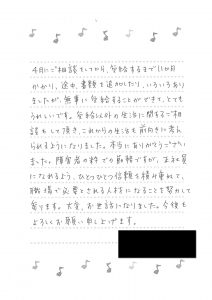 4月にご相談をしてから、受給するまで11か月
かかり、途中、書類を追加したり、いろいろあり
ましたが、無事に受給することができて、とても
うれしいです。受給以外の生活に関するご相
談もして頂き、これからの生活も前向きに考え
られるようになりました。本当にありがとうござい
ました。障害者の枠での勤務ですが、正社員
になれるよう、ひとつひとつ信頼を積み重ねて、
職場で必要とされる人材になることを努力して
参ります。大変、お世話になりました。今後も
よろしくお願い申し上げます。